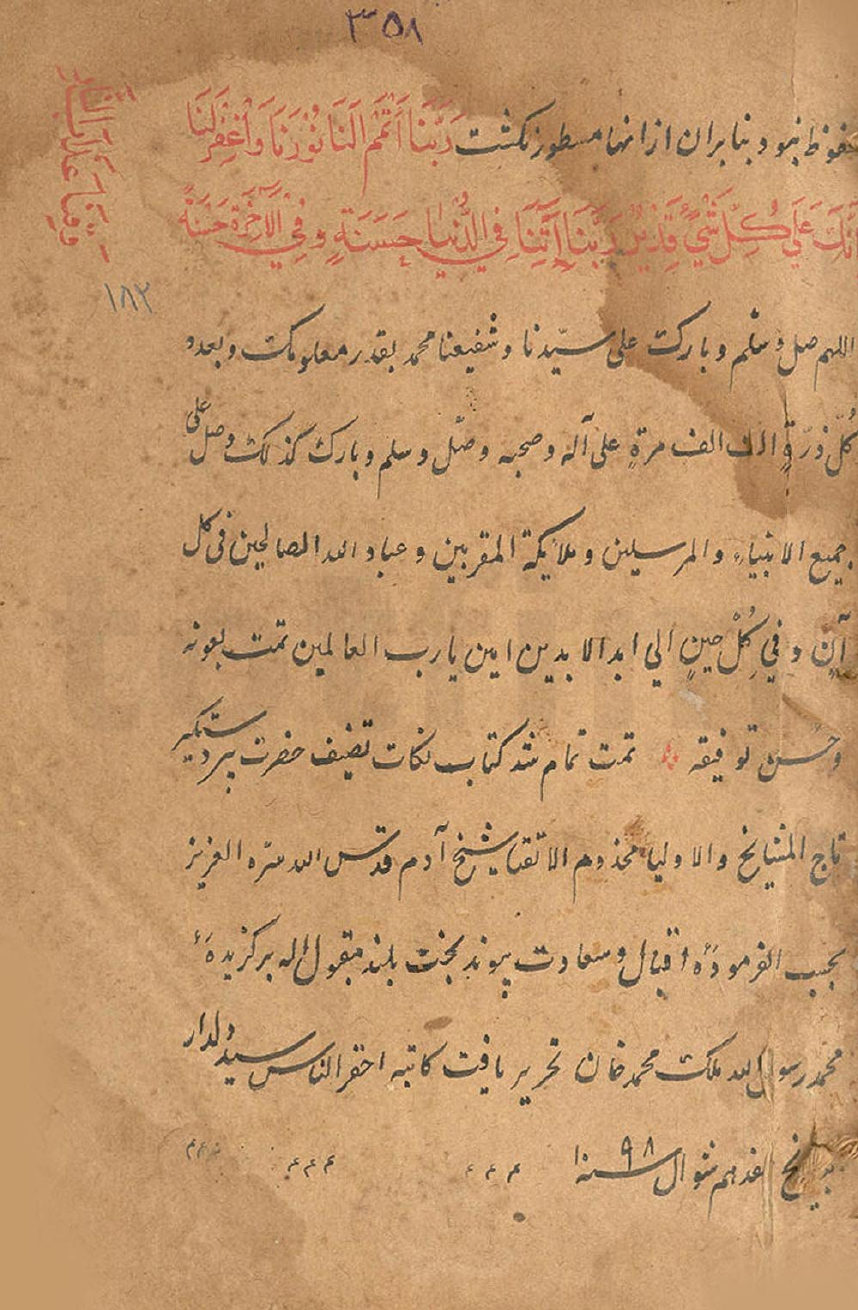 ٣٥٨
محفوظ نبود بنابران ازانها مسطور نکشت رَبَّنَا أَتْمِمْ لَنَا نُوْرَنَا وَاغْفِرْلَنَا
اِنَّكَ عَلَي كُلِّ شَيْءٍ قَدِيْرٌ رَبَّنَا اَتِنَا فِي الدُّنْيَا حَسَنَةٍ وفِي الْاَخِرَةِ حَسَنَةً
وقنا عذاب النار
١٨٢
اللهم صل و سلّم و بارک علی سیّدنا و شفیعنا محمد بقدر معلوماتک و بعدد
كُلّ ذرّةٍ الف الف مرةٍ علی آله و صحبه و صلّ و سلم و بارک کذلک وصل علی
جمیع الانبیاء و المرسلین و ملایکة المقربین و عباد الله الصالحین فی کل
آنٍ و فِي كُلِّ حينٍ الي ابد الابدین امین یا رب العالمین تمت بعونه
و حُسن توفیقه تمت تمام شد کتاب نکات تصنیف حضرت پیر دستکیر
تاج المشایخ والاولیا مخدوم الاتقیا شیخ آدم قدس الله سرّه العزیز
بحسب الفرمودهٔ اقبال و سعادت پیوند بخت بلند مقبول اله برکزیدهٔ
محمد رسول الله ملک محمد خان تحریر یافت کاتبه احقر الناس سید دلدار
بتاریخ هفدهم شوال سنه ١٠٩٨